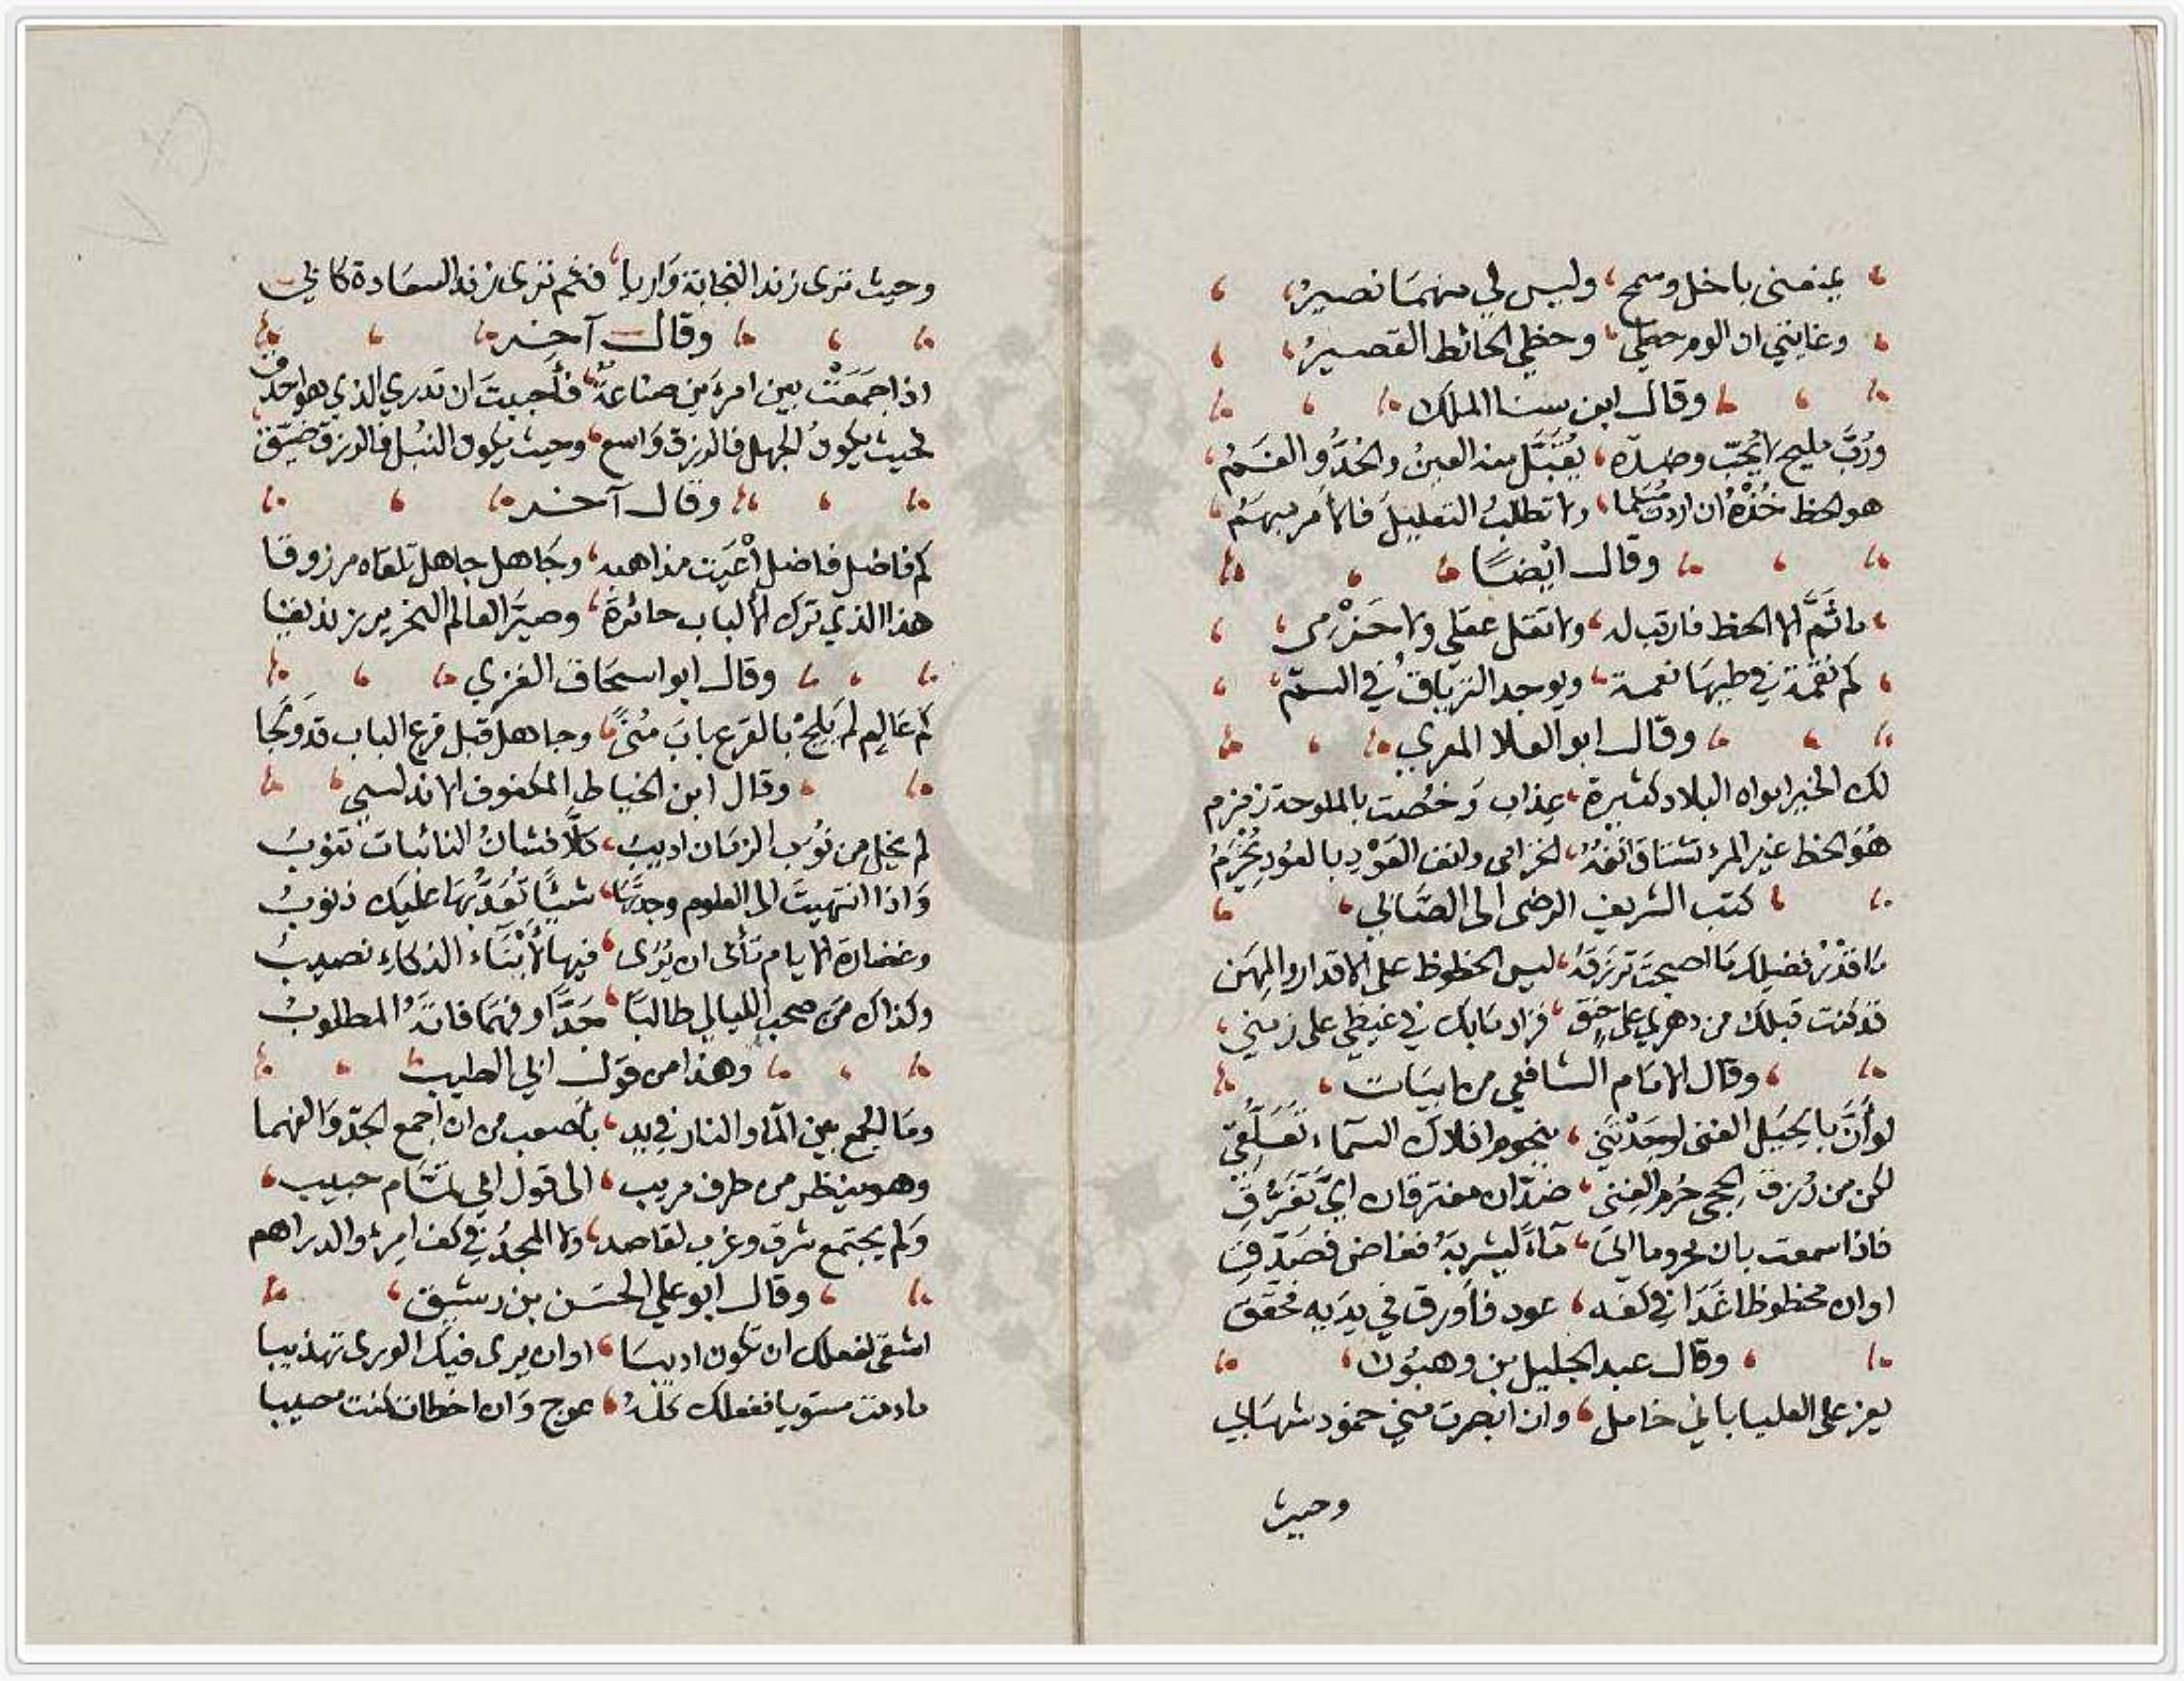 يمنعني باخل وسمح، وليس لي منهما نصير،
وغايتي ان الوم حظي، وحظي الحائط القصير،
وقال ابن سنا الملك
ورُبَّ مليح لا يُحَبّ وضدّه، يُقَبَّل منه العينُ والخدُّ والفَمُ،
هو الحظ خُذْهُ ان اردت مُسَلما، ولا تطلُب التعليلَ فالأمر مبهَمُ،
وقال ايْضًا
ما ثَمَّ الا الحظ فارتب له، ولا تقل عقلي ولا حَزْمي،
كم نقمة في طيها نعمة، ويوجد الترياقُ في السمّ،
وقال ابو العلا المعري
لك الخير امواه البلاد كثيرة، عذاب وَخُصت بالملوحة زمزم
هُوَ الحظ عَير المرء تشتاق انفُهُ، لخزامى وانف العَوْدِ بالعُودِ يُخْزَمُ
كتب الشريف الرضى الى الصّابي،
مَا قَدْرُ فضلك مَا اصبحتَ تُرزَقَهُ، ليس الحظوظ على الاقدار والمِهَن
قد كنت قبلك من دهري على حَنَق، فزاد مَا بك في غيظي على زمني،
وقال الامَام الشافعي من ابيَات،
لو أنَّ بالحِيَل الغنى لوجَدْتَني، بنجوم افلاك السمَاء تَعَلُّقي
لكن من رُزق الحِجى حُرم الغِنى، ضدّان مفترقان ايَّ تَفَرُّقِ
فاذا سمعت بان محروما اتى، مَاءً ليشربَهُ فغاض فصَدّقِ
اوان محظوظا غَدَا في كفه، عود فأورق في يدَيه فحَقّق
وقال عبد الجليل بن وهبُون،
يعز على العليا باني خامل، وان ابصرت مني خمود شهَابي
وحيث
وحيث ترى زند النجابة وَاريا، فثم ترى زند السعَادة كابي
وقال آخر
اذا جَمَعَتْ بين امرءَين صناعةٌ، فأحببتَ ان تدري الذي هو احذق
فحيث يكون الجهل فالرزق وَاسع، وحيث يكون النبْل فالرزق ضيّق
وقال آخر
كم فاضل فاضل أعْيَت مذاهبه، وجَاهل جاهل تلقاه مرزوقا
هذا الذي ترك الألباب حائرةً، وصيّر العالم النحرير زنديقا
وقال ابو اسحَاق الغزي
كم عَالِم لم يَلِجْ بالقرع بابَ مُنًى، وجاهل قبل قرع الباب قد وَلَجا
وقال ابن الخياط المكفوف الاندلسي،
لم يخل من نُوَب الزمَان اديبُ، كلّا فشانُ النائبات تنوبُ
وَاذا انتهيتَ الى العلوم وجدتَها، شيئًا تُعَدُّ بهَا عليك ذنوبُ
وغضارة الايام تأبى ان يُرَى، فيها لأبْنَاء الذكاء نصيبُ
وكذاك مَن صحب الليالي طالبًا، جَدًّا وفهمَا فاتَهُ المطلوبُ
وهذا من قوَل ابي الطيب،
ومَا الجمع بين المَا والنار في يد، بأصعب من ان اجمع الجدّ وَالفهما
وهو ينظر من طرف مريب، الى قول ابي تمَّام حبيب،
وَلم يجتمع شرق وغرب لقاصد، ولا المجدُ في كف امرئ والدراهم
وقال ابو علي الحسَن بن رشيق،
اشقى لعقلك ان تكون اديبَا، او ان يرى فيك الورى تهذيبا
ما دمت مستويا ففعلك كلّهُ، عوج وَان اخطات كنت مصيبا